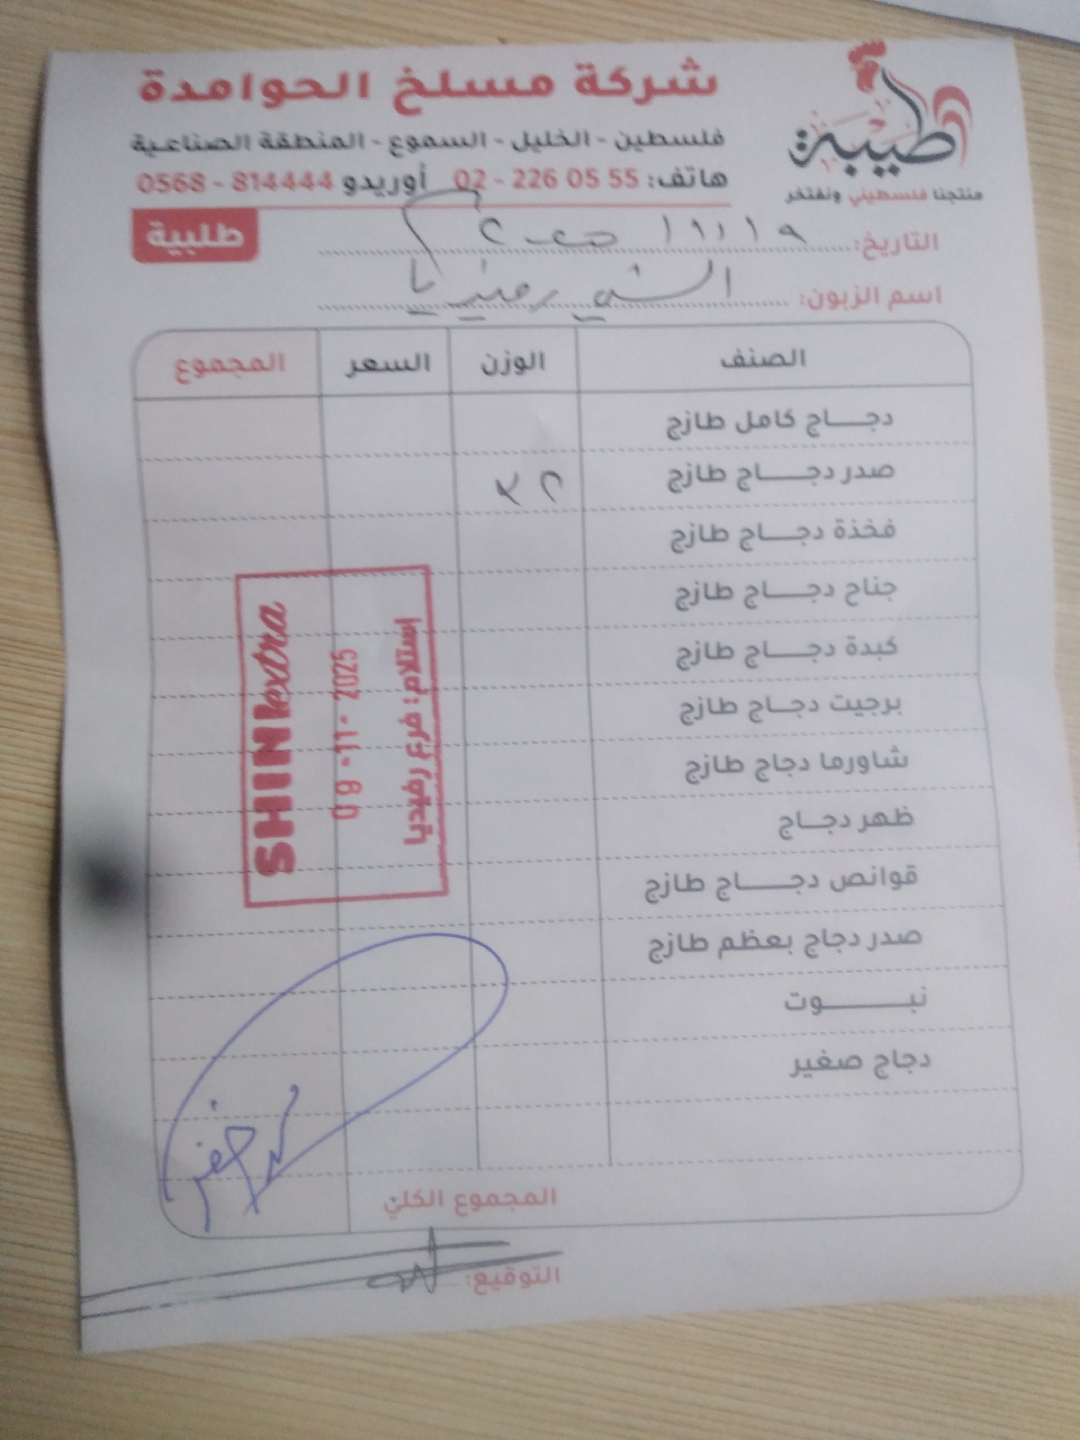 شركة مسلخ الحوامدة
فلسطين - الخليل - السموع - المنطقة الصناعية
هاتف: 55 05 226 - 02 أوريدو 814444 - 0568
طيبة
منتجنا فلسطيني ونفتخر
طلبية
التاريخ: ٩ / ١١ /
اسم الزبون: رفيديا
الصنف الوزن السعر المجموع
دجاج كامل طازج
صدر دجاج طازج
فخذة دجاج طازج
جناح دجاج طازج
كبدة دجاج طازج
برجيت دجاج طازج
شاورما دجاج طازج
ظهر دجاج
قوانص دجاج طازج
صدر دجاج بعظم طازج
نبوت
دجاج صغير
المجموع الكلي
التوقيع:
SHINI extra
09 -11- 2025
استلام: فرع رفيديا